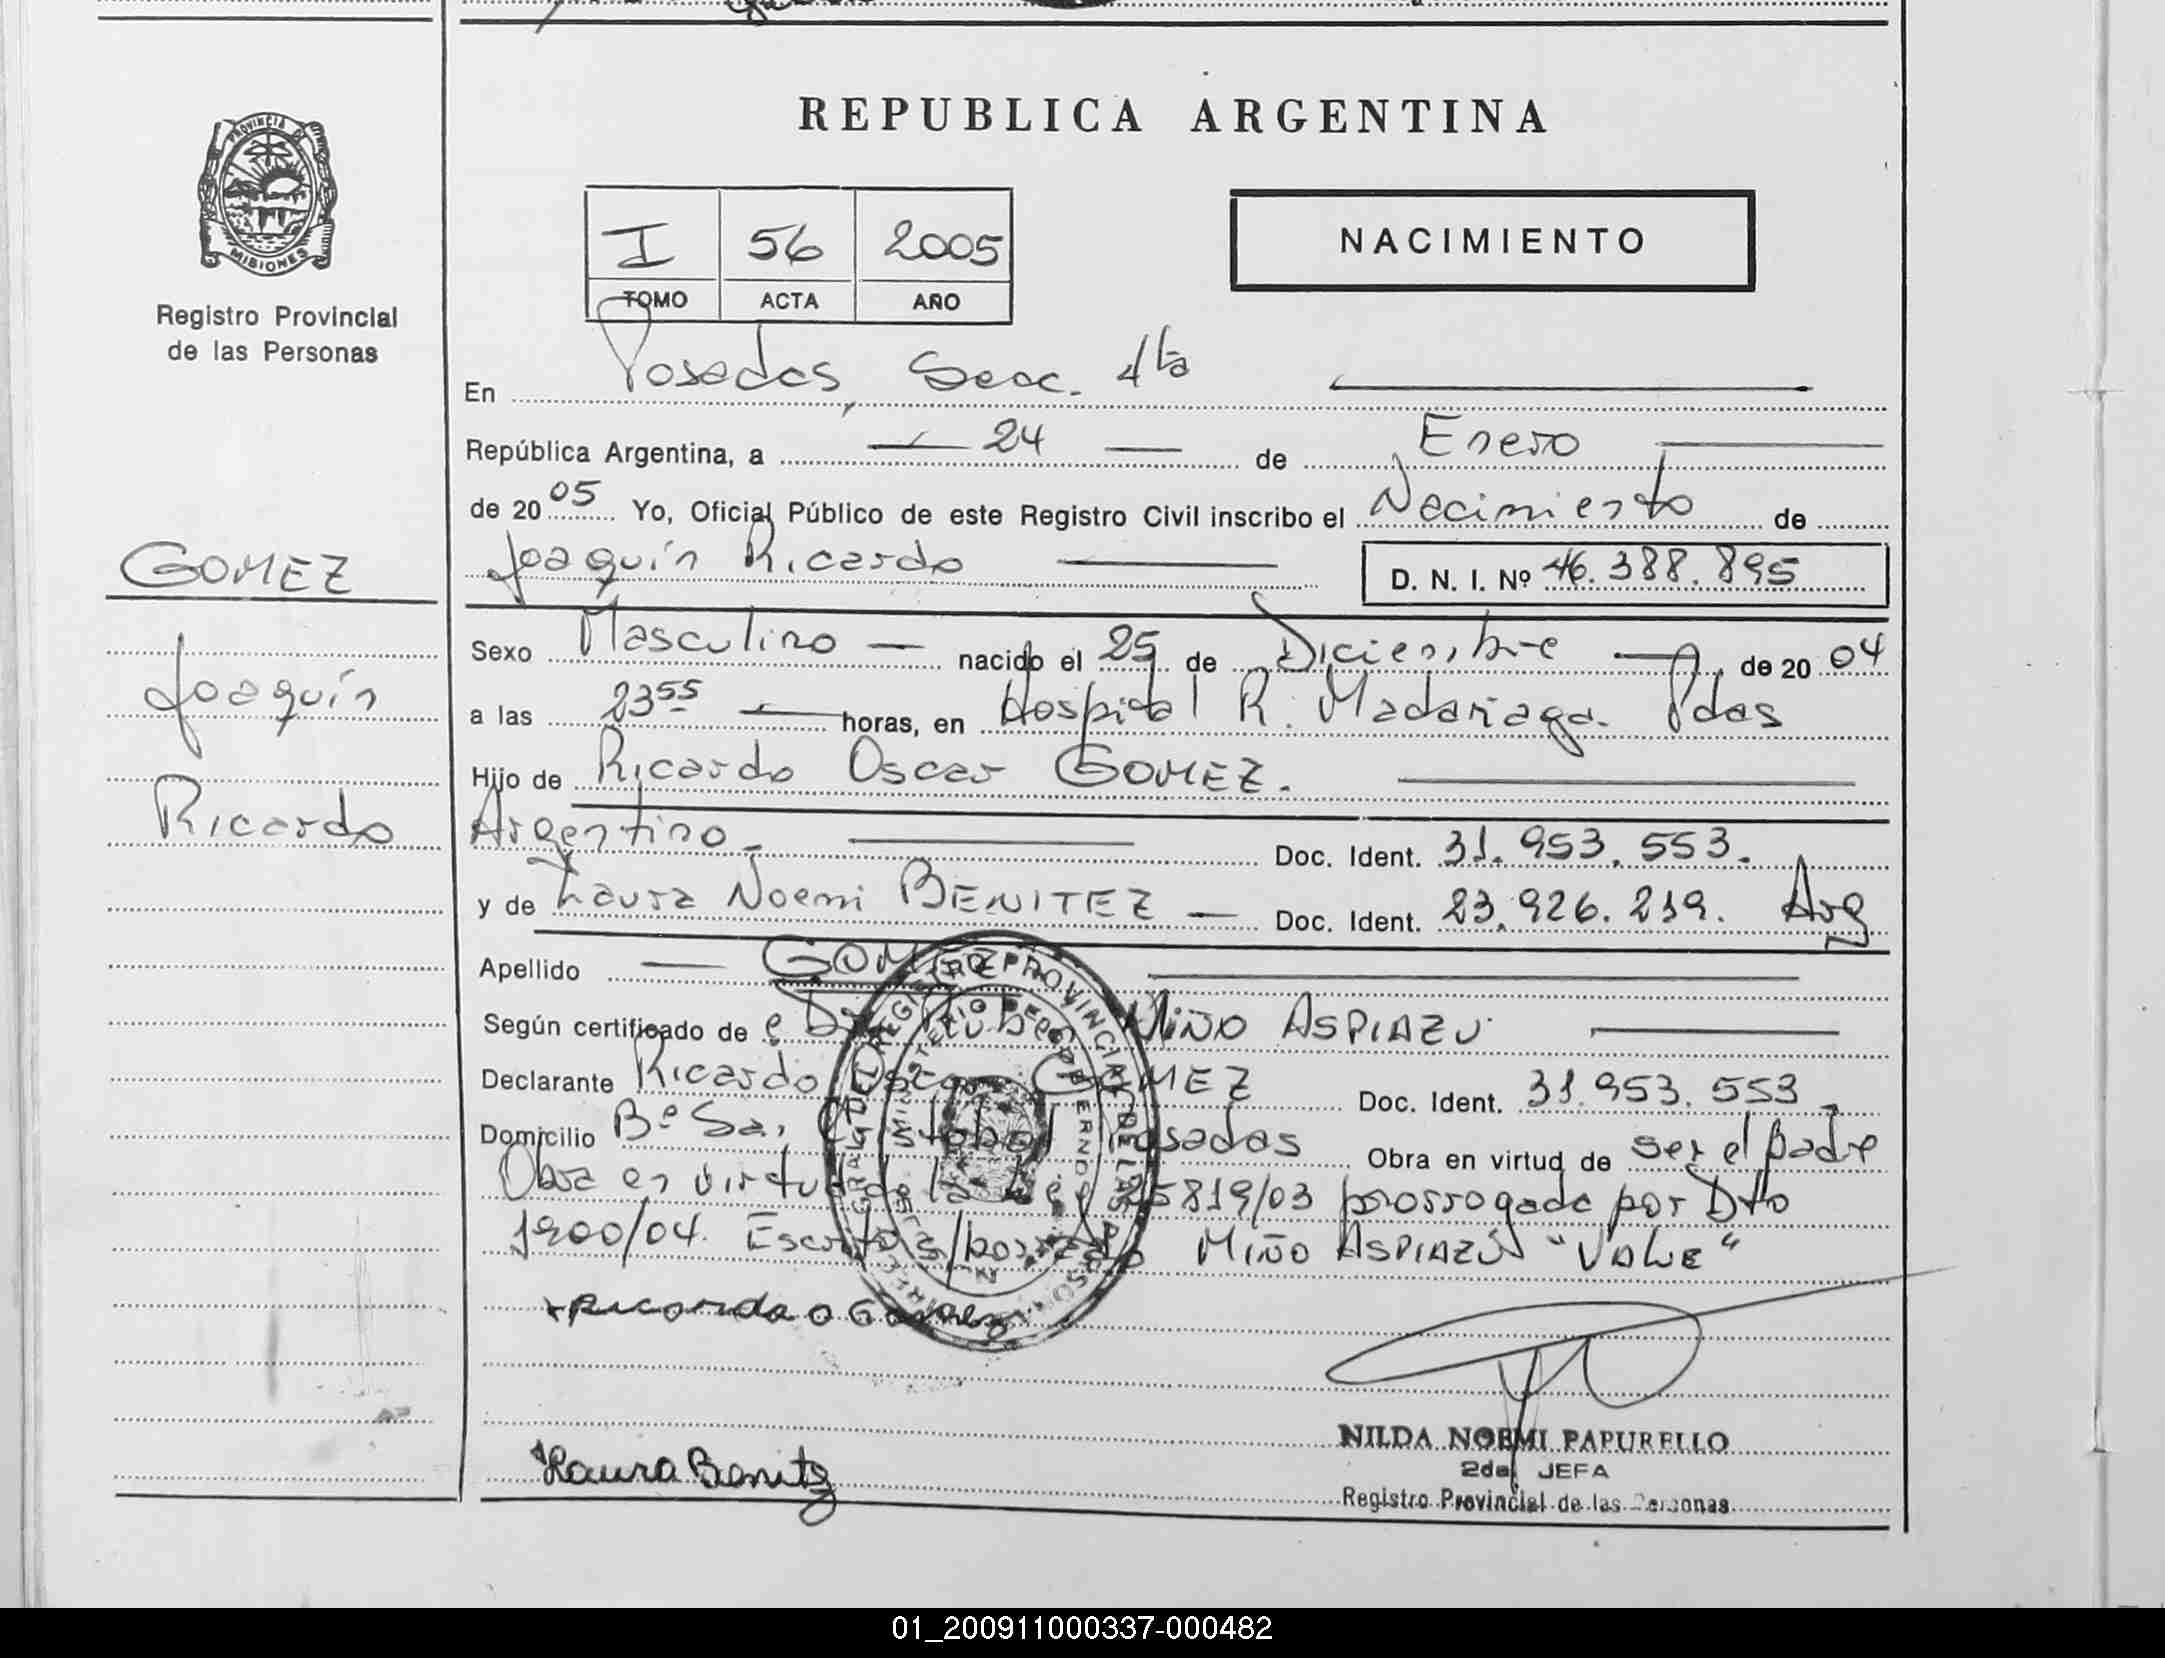 REPUBLICA ARGENTINA
PROVINCIA DE
MISIONES
Registro Provincial
de las Personas
I 56 2005
TOMO ACTA AÑO
NACIMIENTO
En Posadas, Secc. 4ta
República Argentina, a 24 de Enero
de 20 05 Yo, Oficial Público de este Registro Civil inscribo el Nacimiento de
GOMEZ
Joaquín Ricardo D. N. I. Nº 46.388.895
Sexo Masculino nacido el 25 de Diciembre de 20 04
Joaquín
a las 23 55 horas, en Hospital R. Madariaga. Pdas
Hijo de Ricardo Oscar GOMEZ.
Ricardo
Argentino Doc. Ident. 31.953.553.
y de Laura Noemi BENITEZ Doc. Ident. 23.926.219. Arg
Apellido GOMEZ
Según certificado de Dr. Ruben MIÑO ASPIAZU
Declarante Ricardo Oscar GOMEZ Doc. Ident. 31.953.553
Domicilio Bº San Cristobal Posadas Obra en virtud de ser el padre
Obra en virtud de la Ley 25819/03 prorrogada por Dto
1900/04. Escrito s/borrado MIÑO ASPIAZU "VALE"
Ricardo O Gomez
NILDA NOEMI PAPURELLO
2da JEFA
Laura Benitez
Registro Provincial de las Personas
01_200911000337-000482